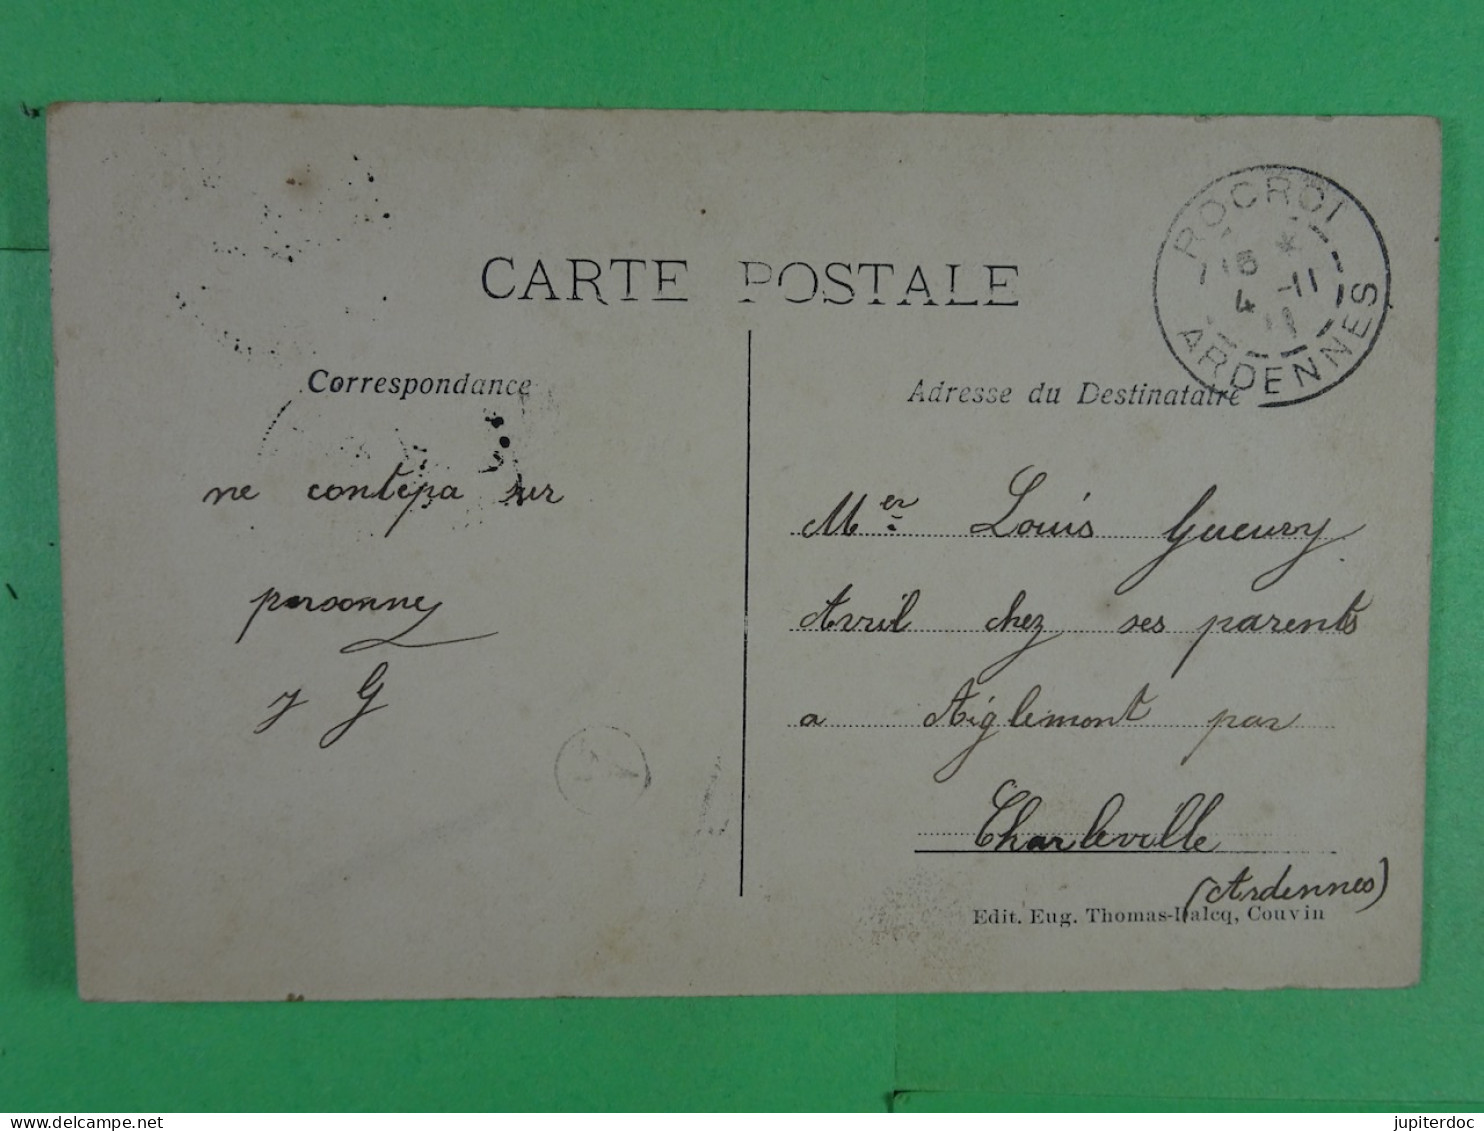 CARTE POSTALE
ROCROI
4 -11
ARDENNES
Correspondance
ne contépa sur
personne
y G
Adresse du Destinataire
Mer Louis Gueury
Avril chez ses parents
a Aiglemont par
Charleville
(Ardennes)
Edit. Eug. Thomas-Halcq, Couvin
delcampe.net
jupiterdoc